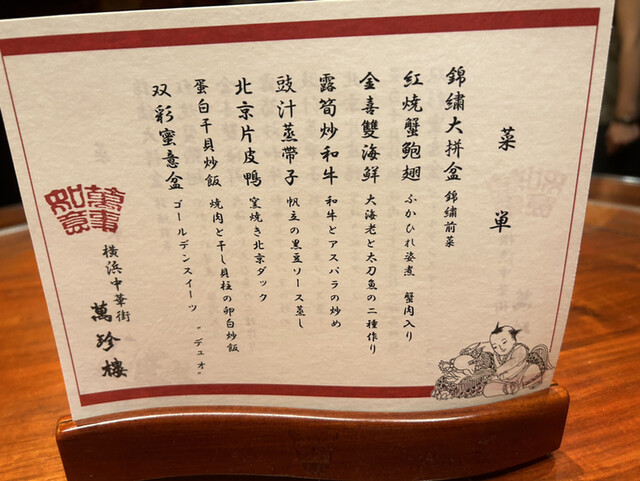 菜単
錦繡大拼盆 錦繍前菜
红燒蟹鮑翅 ふかひれ姿煮 蟹肉入り
金喜雙海鮮 大海老と太刀魚の二種作り
露筍炒和牛 和牛とアスパラの炒め
豉汁蒸帶子 帆立の黒豆ソース蒸し
北京片皮鴨 窯焼き北京ダック
蛋白干貝炒飯 焼肉と干し貝柱の卵白炒飯
双彩蜜意盆 ゴールデンスイーツ “デュオ”
萬事如意
横浜中華街 萬珍樓